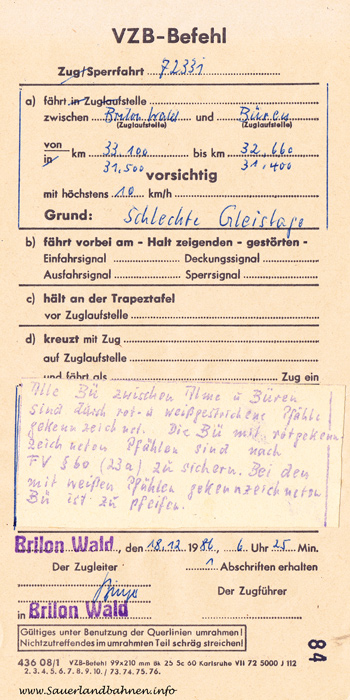 VZB-Befehl
Zug/Sperrfahrt 72331
a) fährt in Zuglaufstelle
zwischen Brilon Wald und Büren
(Zuglaufstelle) (Zuglaufstelle)
von
in km 33,100 bis km 32,660
31,500 31,400
vorsichtig
mit höchstens 10 km/h
Grund: Schlechte Gleislage
b) fährt vorbei am - Halt zeigenden - gestörten -
Einfahrsignal Deckungssignal
Ausfahrsignal Sperrsignal
c) hält an der Trapeztafel
vor Zuglaufstelle
d) kreuzt mit Zug
auf Zuglaufstelle
und fährt als Zug ein
Alle Bü zwischen Alme u Büren
sind durch rot- u weißgestrichene Pfähle
gekennzeichnet. Die Bü mit rotgekenn-
zeichneten Pfählen sind nach
FV § 60 (23a) zu sichern. Bei den
mit weißen Pfählen gekennzeichneten
Bü ist zu pfeifen.
Brilon Wald, den 18.12 1986, 6 Uhr 25 Min.
Der Zugleiter 1 Abschriften erhalten
Der Zugführer
in Brilon Wald
Gültiges unter Benutzung der Querlinien umrahmen!
Nichtzutreffendes im umrahmten Teil schräg streichen!
84
436 08/1 VZB-Befehl 99x210 mm Bk 25 Sc 60 Karlsruhe VII 72 5000 J 112
2. 3. 4. 5. 6. 7. 8. 9. 10. / 73. 74. 75. 76.
www.sauerlandbahnen.info